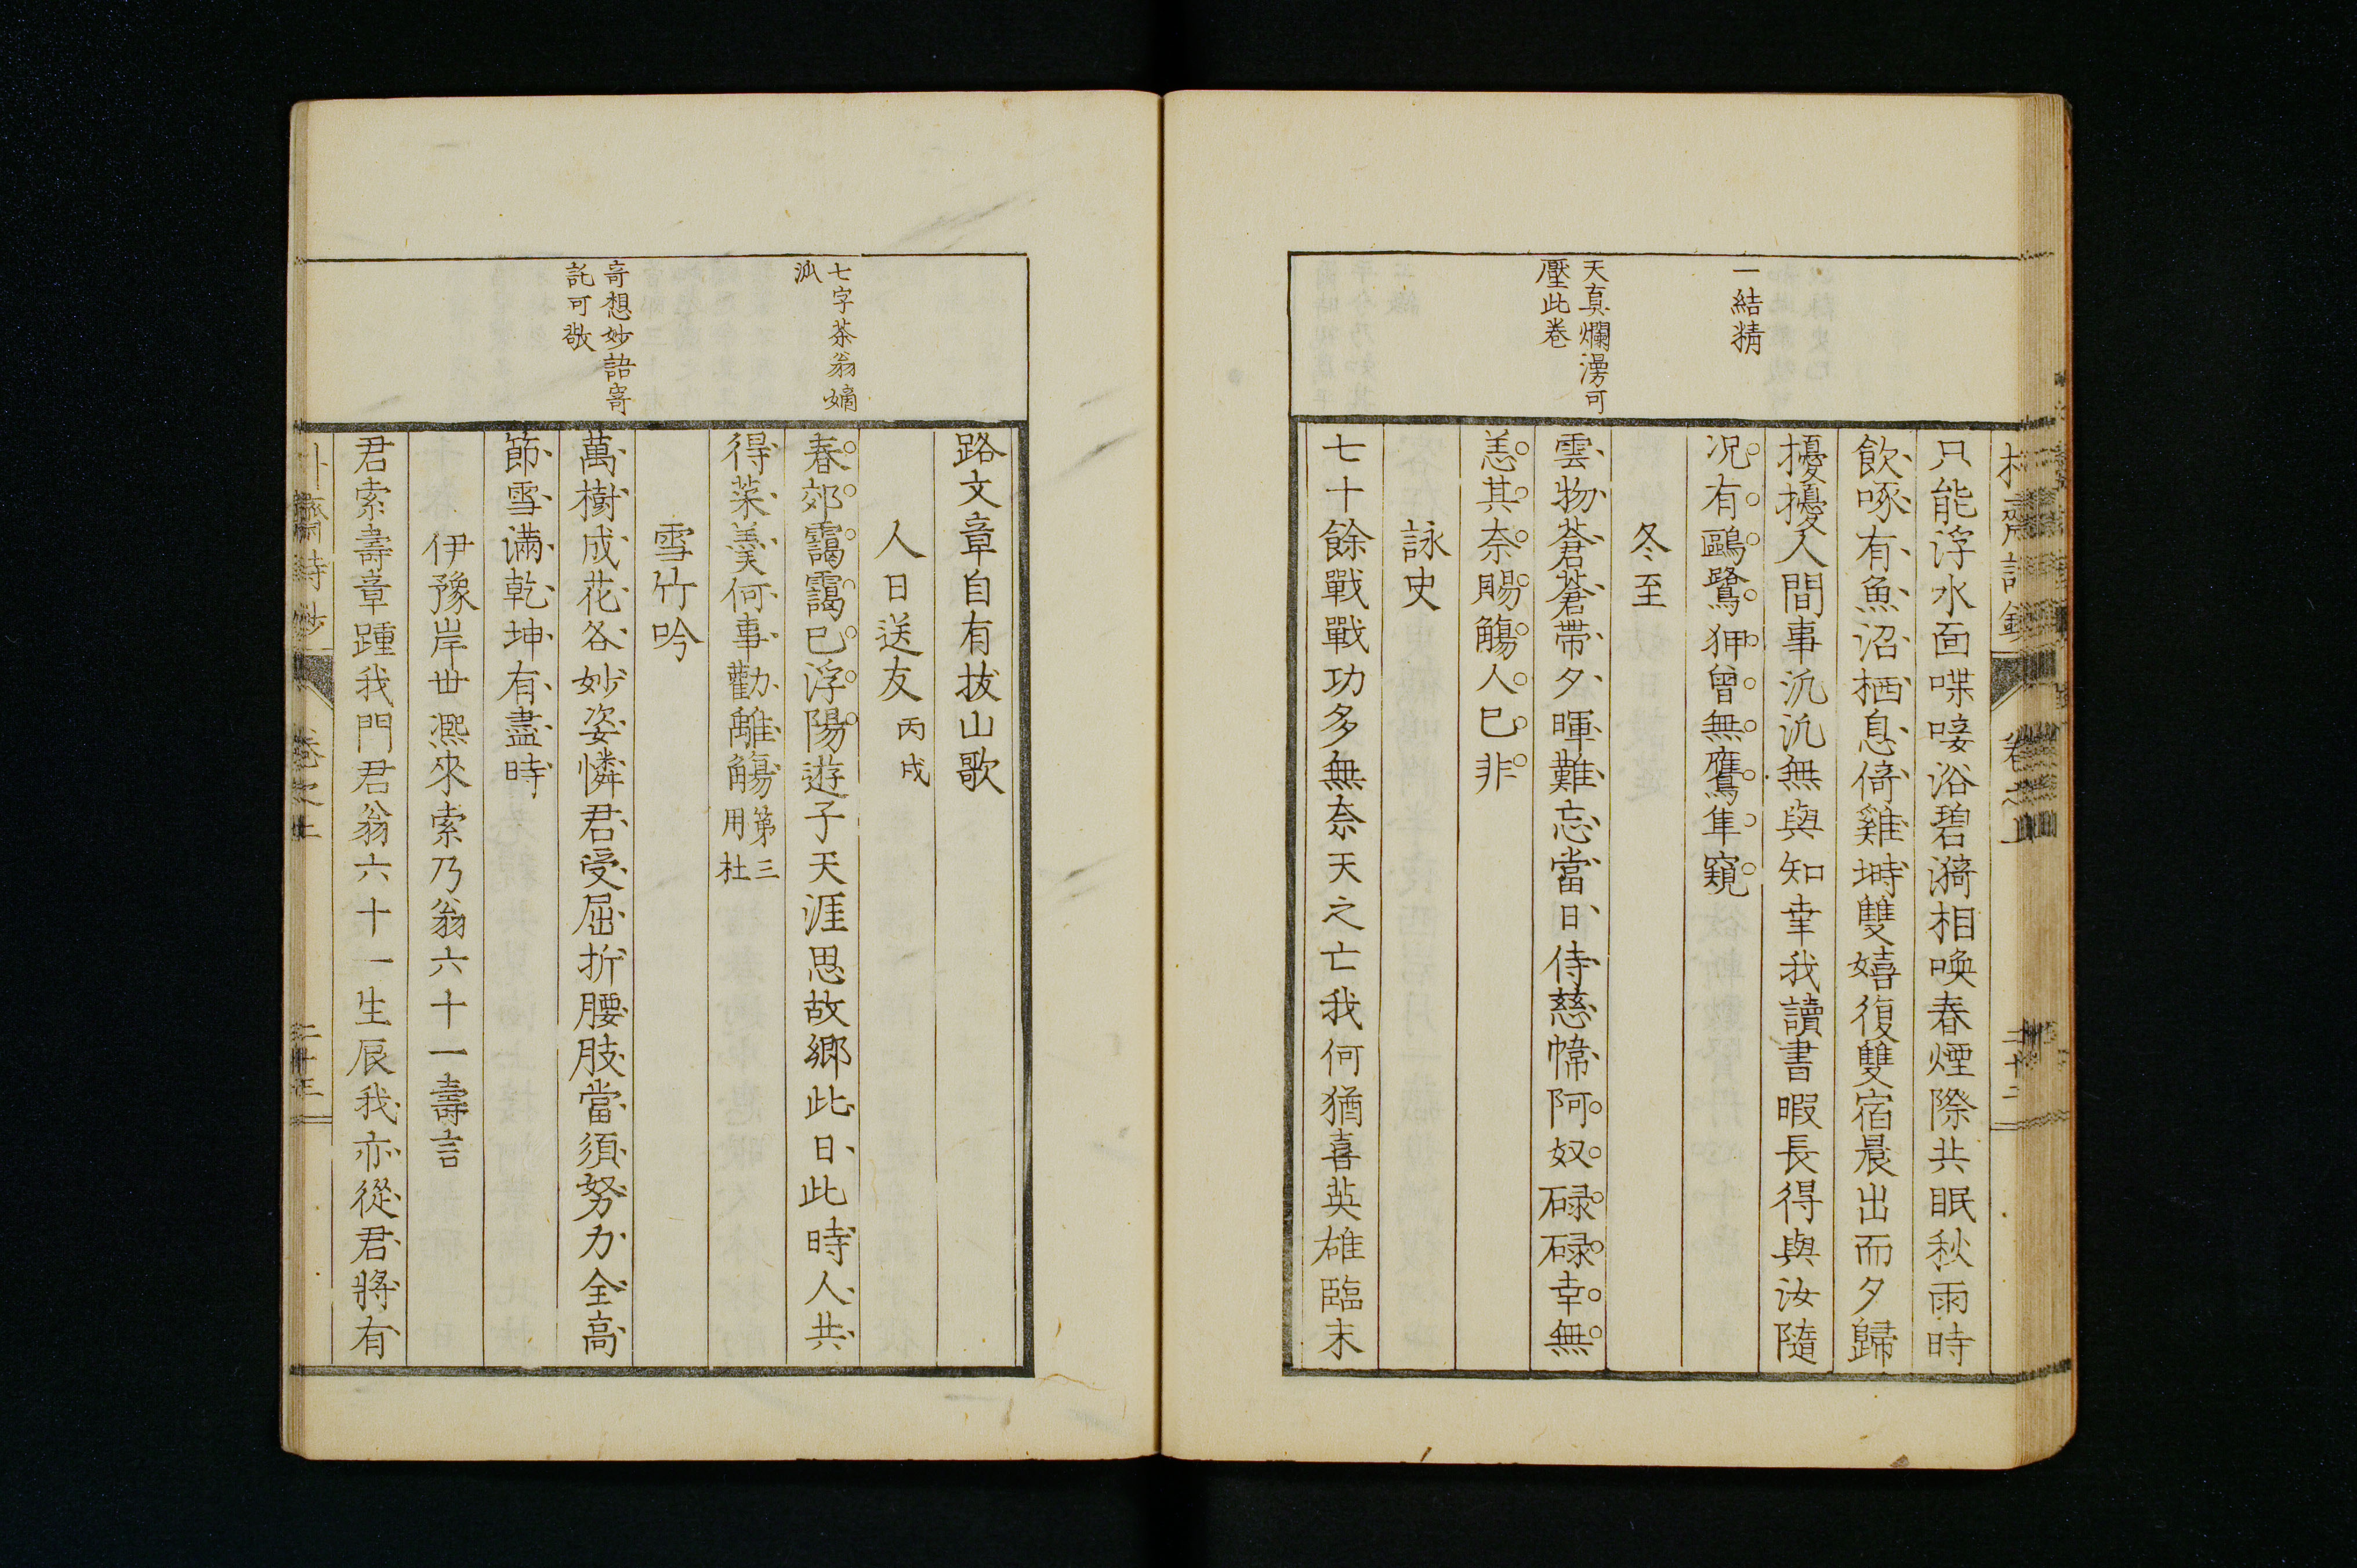 一結猜
天真爛漫可
壓此卷
只能浮水面喋唼浴碧漪相喚春煙際共眠秋雨時
飲啄有魚沼栖息倚雞塒雙嬉復雙宿晨出而夕歸
擾擾人間事汎汎無與知幸我讀書暇長得與汝隨
况有鷗鷺狎曾無鷹隼窺
冬至
雲物蒼蒼帶夕暉難忘當日侍慈幃阿奴碌碌幸無
恙其奈賜觴人已非
詠史
七十餘戰戰功多無奈天之亡我何猶喜英雄臨末
卷之上
二十二
七字茶翁嫡
派
奇想妙語寄
託可敬
路文章自有拔山歌
人日送友 丙戌
春郊靄靄已浮陽遊子天涯思故郷此日此時人共
得菜羹何事勸離觴 第三用杜
雪竹吟
萬樹成花各妙姿憐君受屈折腰肢當須努力全高
節雪滿乾坤有盡時
伊豫岸世凞來索乃翁六十一壽言
君索壽章踵我門君翁六十一生辰我亦從君將有
齋詩鈔
卷之上